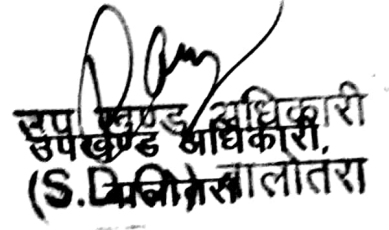 उप खण्ड अधिकारी
उपखण्ड अधिकारी,
(S.D. बालोतरा